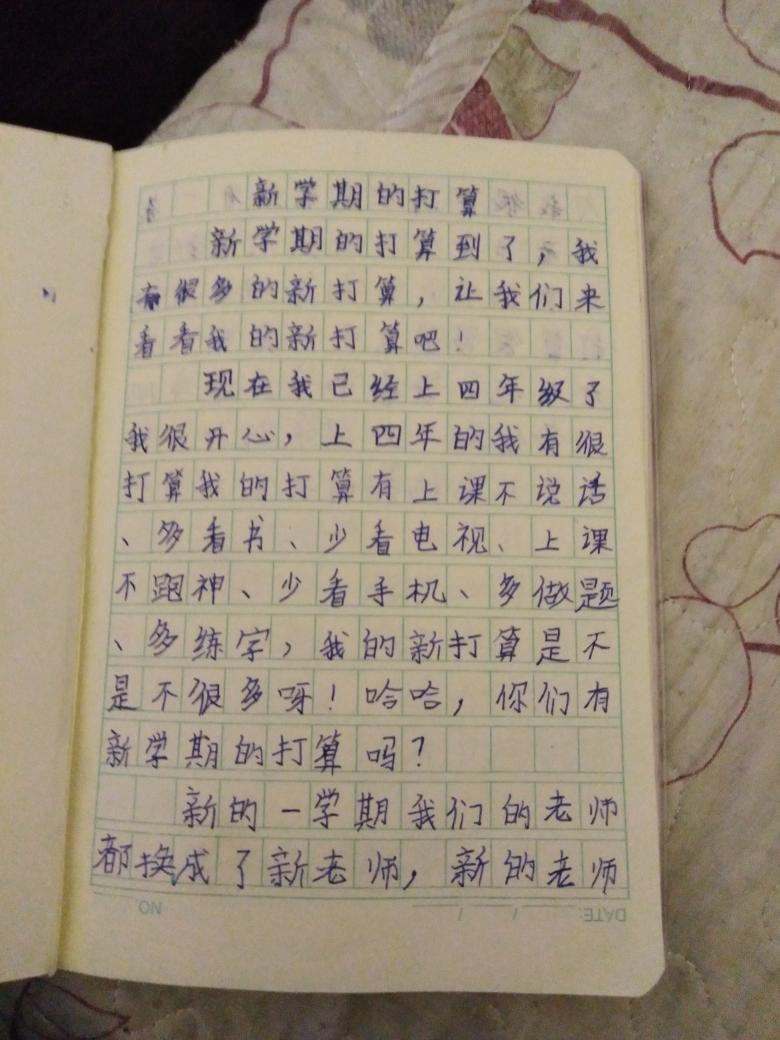 新学期的打算
新学期的打算到了，我
有很多的新打算，让我们来
看看我的新打算吧！
现在我已经上四年级了
我很开心，上四年的我有很
打算我的打算有上课不说话
、多看书、少看电视、上课
不跑神、少看手机、多做题
、多练字，我的新打算是不
是不很多呀！哈哈，你们有
新学期的打算吗？
新的一学期我们的老师
都换成了新老师，新的老师
DATE: / / NO.